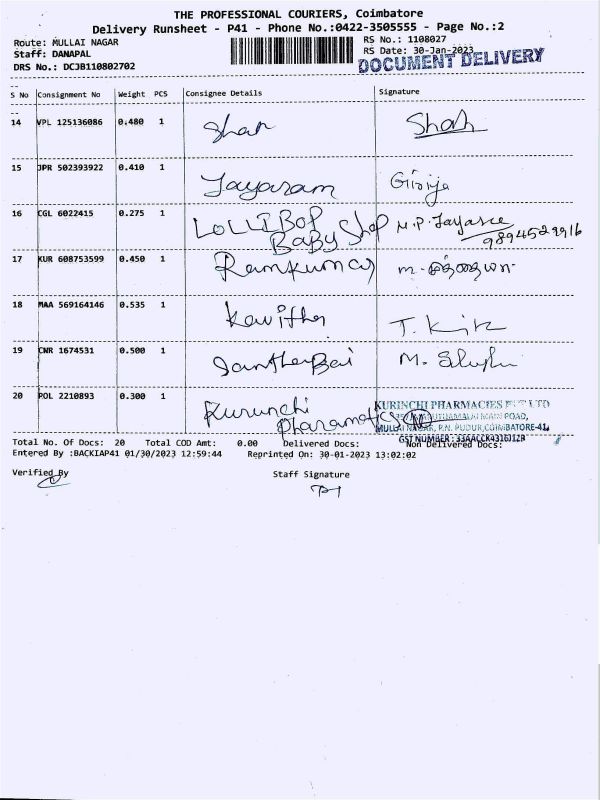 THE PROFESSIONAL COURIERS, Coimbatore
Delivery Runsheet - P41 - Phone No.:0422-3505555 - Page No.:2
Route: MULLAI NAGAR
Staff: DANAPAL
DRS No.: DCJB110802702
RS No.: 1108027
RS Date: 30-Jan-2023
DOCUMENT DELIVERY
S No Consignment No Weight PCS Consignee Details Signature
14 VPL 125136086 0.480 1 Shah Shah
15 JPR 502393922 0.410 1 Jayaram Girija
16 CGL 6022415 0.275 1 LOLLIBOP BABY Shop M.P. Jayasree
9894529916
17 KUR 608753599 0.450 1 Ramkumar M.
18 MAA 569164146 0.535 1 Kavitha T.
19 CWR 1674531 0.500 1 M.
20 POL 2210893 0.300 1 Kurunchi
KURINCHI PHARMACIES PVT LTD
MULLAI NAGAR, P.N. PUDUR, COIMBATORE-41.
GST NUMBER:
Total No. Of Docs: 20 Total COD Amt: 0.00 Delivered Docs: Non Delivered Docs:
Entered By :BACKIAP41 01/30/2023 12:59:44 Reprinted On: 30-01-2023 13:02:02
Verified By Staff Signature